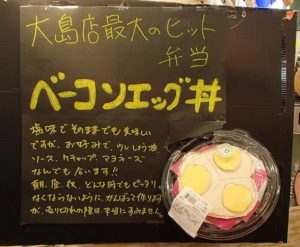 大島店最大のヒット
弁当
ベーコンエッグ丼
塩味でそのままでも美味しい
ですが、お好みで、ウレしょう油
ソース、ケチャップ、マヨネーズ
なんでも合います!!
朝、昼、夜、どんな時でもピッタリ
なくならないように、がんばって作ります
が、売り切れの際は、本当にすみません